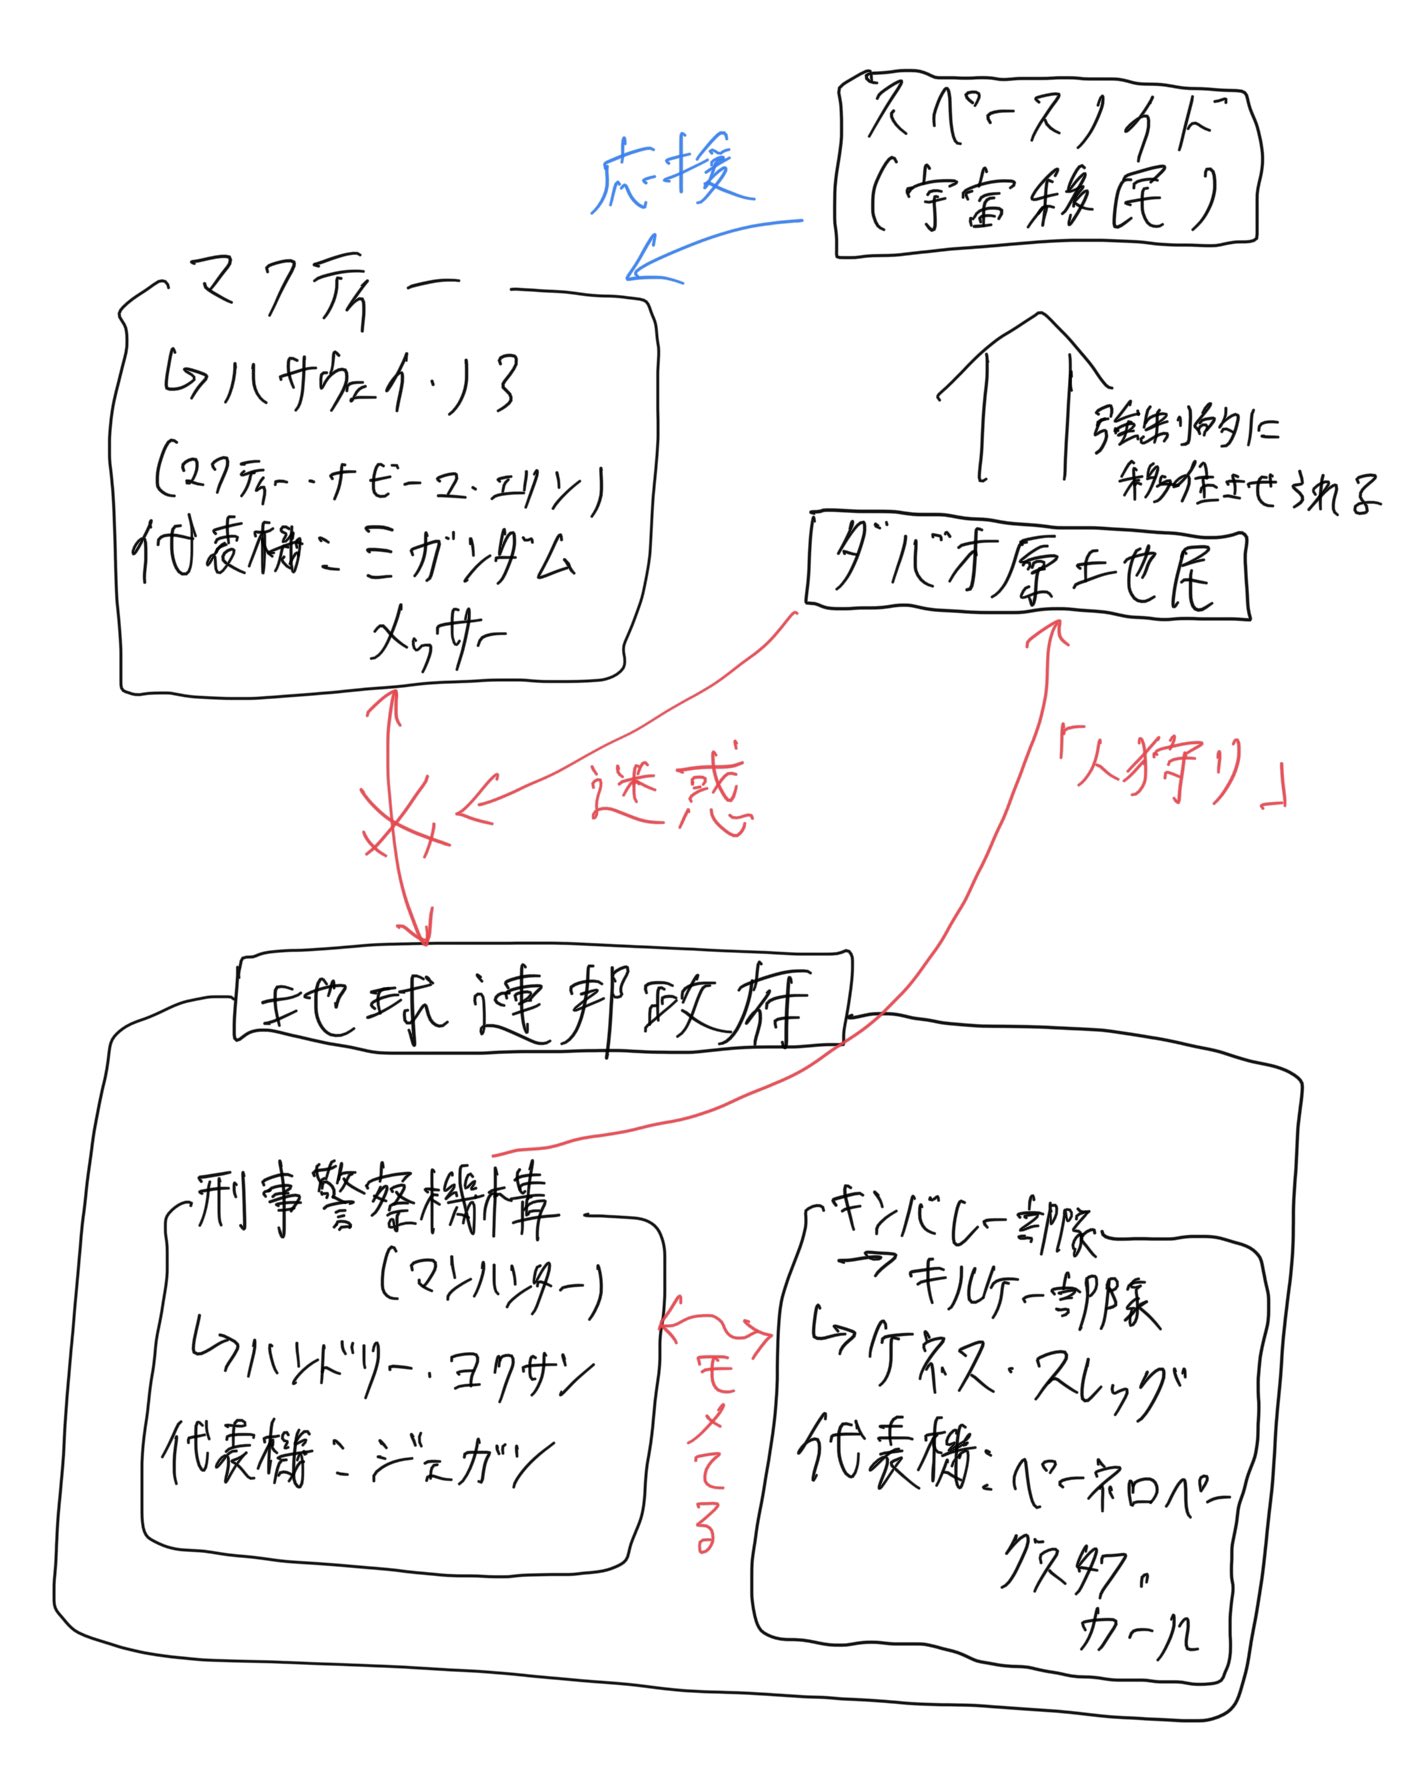 スペースノイド
(宇宙移民)
応援
マフティー
↳ハサウェイ・ノア
(マフティー・ナビーユ・エリン)
代表機:Ξガンダム
メッサー
強制的に
移住させられる
ダバオ原土地民
迷惑
「人狩り」
地球連邦政府
刑事警察機構
(マンハンター)
↳ハンドリー・ヨクサン
代表機:ジェガン
モメてる
キンバレー部隊
→キルケー部隊
↳ケネス・スレッグ
代表機:ペーネロペー
グスタフ・
カール